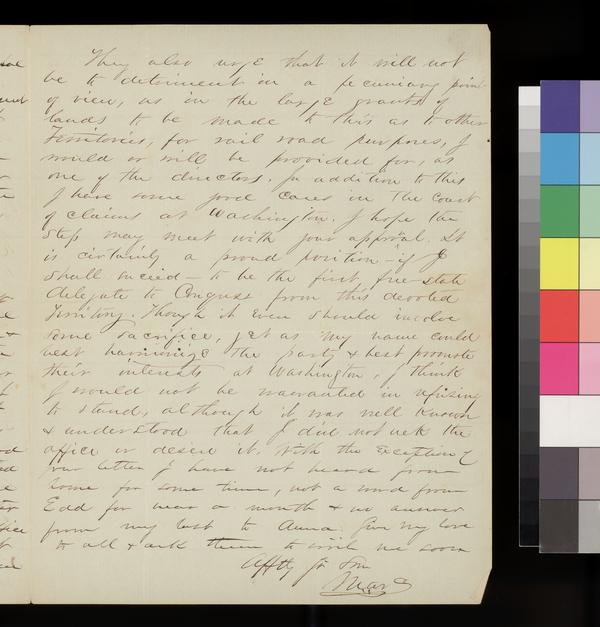 They also urge that it will not
be to detriment in a pecuniary point
of view, as in the large grants of
lands to be made to this as to other
Territories, for rail road purposes, I
would or will be provided for, as
one of the directors. In addition to this
I have some good cases in the Court
of claims at Washington. I hope the
step may meet with your approval. It
is certainly a proud position - if I
shall succeed - to be the first free-state
delegate to Congress from this devoted
Territory. Though it even should involve
some sacrifice, yet as my name could
best harmonize the party & best promote
their interests at Washington, I think
I would not be warranted in refusing
to stand, although it was well known
& understood that I did not seek the
office or desire it. With the exception of
your letter I have not heard from
home for some time, not a word from
Edd for near a month & no answer
from my last to Anna. Give my love
to all & ask them to write me soon
Afftly Yr Son
Marc